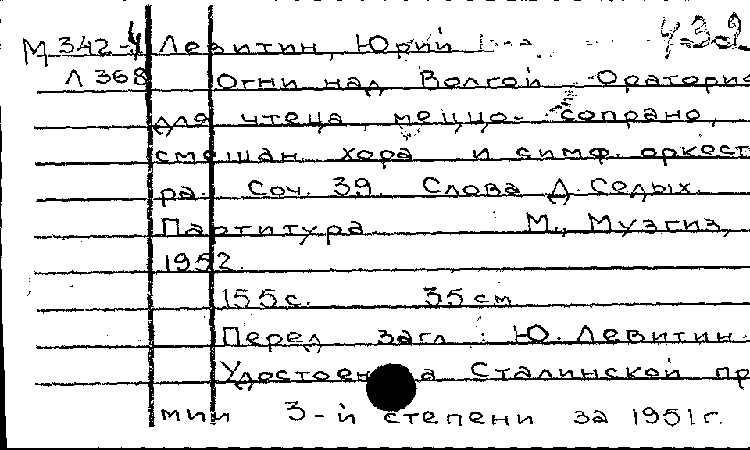 М 342-4 Левитин, Юрий 432
Л 368 Огни над Волгой Оратория
для чтеца, меццо-сопрано,
смешан. хора и симф. оркест-
ра. Соч. 39. Слова Д. Седых.
Партитура М., Музгиз,
1952.
155 с. 35 см
Перед загл.: Ю. Левитин.
Удостоена Сталинской пре-
мии 3-й степени за 1951 г.